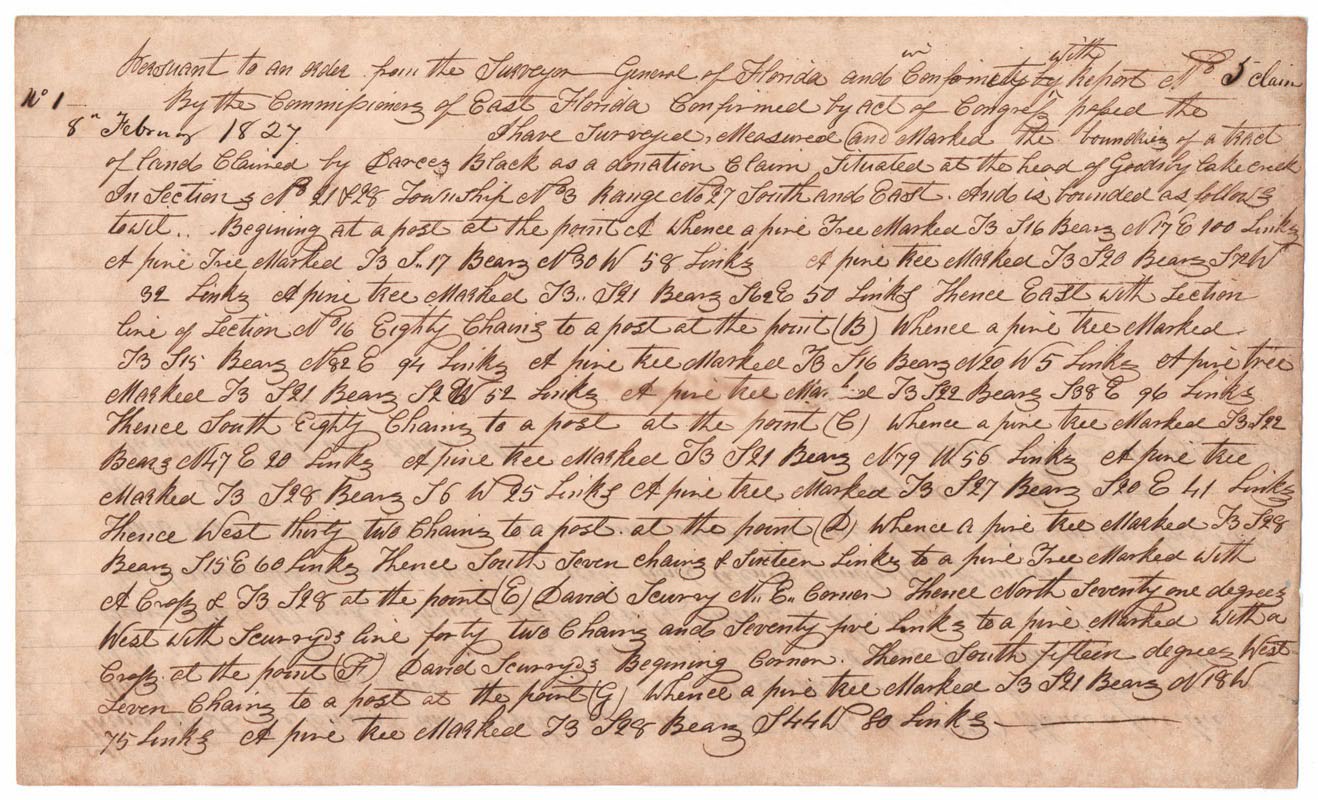 Persuant to an order from the Surveyor General of Florida and in Conformity with Report No 5 claim
No 1 By the Commissioners of East Florida Confirmed by act of Congress passed the
8th February 1827 I have Surveyed, Measured and Marked the boundries of a tract
of land Claimed by Black as a donation Claim Situated at the head of Goodsby lake creek
In Sections No 21 & 28 Township No 3 Range No 27 South and East. And is bounded as follows
towit.. Begining at a post at the point A Whence a pine Tree Marked T3 S16 Bears N17E 100 Links
A pine Tree Marked T3 S..17 Bears N30W 58 Links A pine tree Marked T3 S20 Bears S72W
32 Links A pine tree Marked T3.. S21 Bears S62E 50 Links Thence East with Section
line of Section No 16 Eighty Chains to a post at the point (B) Whence a pine tree Marked
T3 S15 Bears N82E 94 Links A pine tree Marked T3 S16 Bears N20W 5 Links A pine tree
Marked T3 S21 Bears S2W 52 Links A pine tree Marked T3 S22 Bears S38E 96 Links
Thence South Eighty Chains to a post at the point (C) Whence a pine tree Marked T3.S22
Bears N47E 20 Links A pine tree Marked T3 S21 Bears N79W 56 Links A pine tree
Marked T3 S28 Bears S6W 25 Links A pine tree Marked T3 S27 Bears S20E 41 Links
Thence West thirty two Chains to a post at the point (D) Whence a pine tree Marked T3 S28
Bears S15E 60 Links Thence South Seven chains & Sixteen Links to a pine Tree Marked with
A Cross & T3 S28 at the point (E) David Scurry N.. E.. Corner Thence North Seventy one degrees
West with Scurryds line forty two Chains and Seventy five links to a pine Marked with a
Cross at the point (F) David Scurryds Begining Corner. Thence South fifteen degrees West
Seven Chains to a post at the point (G) Whence a pine tree Marked T3 S21 Bears N18W
75 Links A pine tree Marked T3 S28 Bears S44W 80 Links